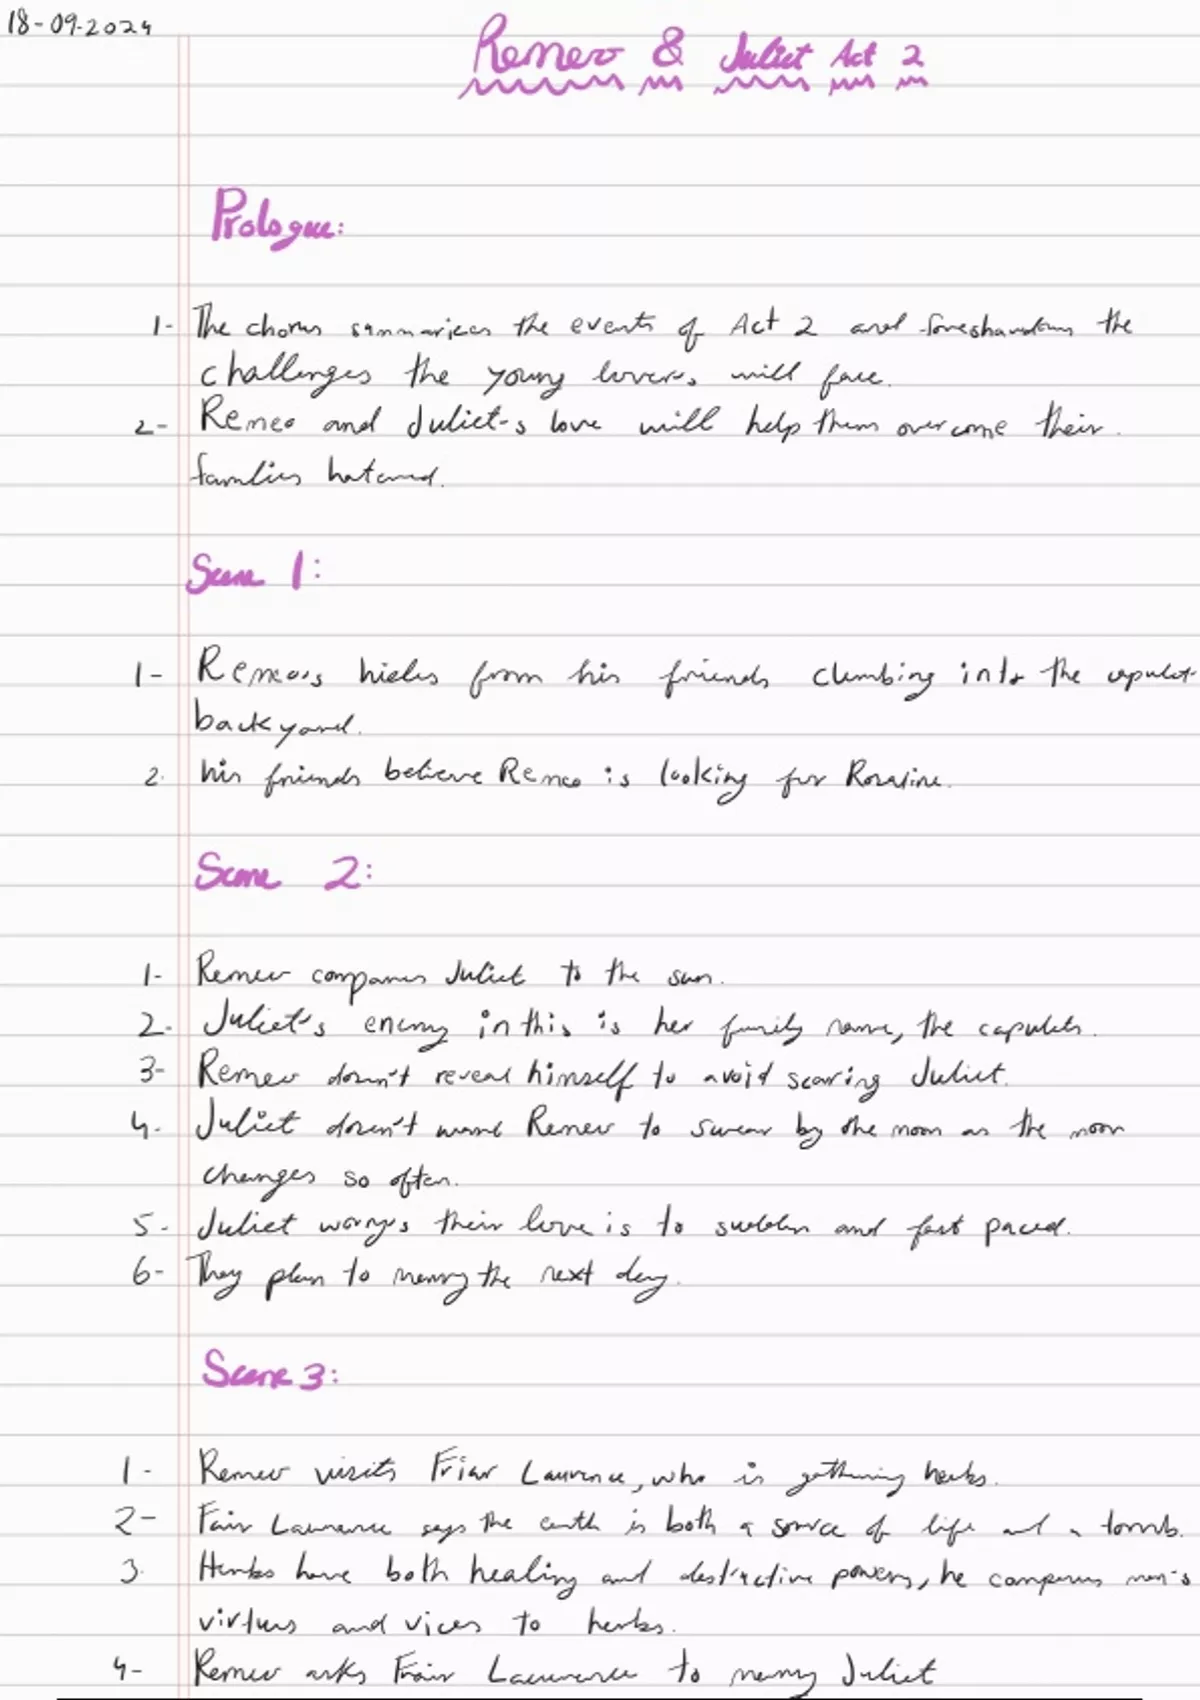 18-09-2024
Romeo & Juliet Act 2
Prologue:
1- The chorus summarizes the events of Act 2 and foreshadows the
challenges the young lovers will face.
2- Romeo and Juliet's love will help them overcome their
families hatered.
Scene 1:
1- Romeo's hides from his friends climbing into the capulet
backyard.
2. his friends believe Romeo is looking for Rosaline.
Scene 2:
1- Romeo compares Juliet to the sun.
2. Juliet's enemy in this is her family name, the capulets.
3- Romeo doesn't reveal himself to avoid scaring Juliet.
4. Juliet doesn't want Romeo to swear by the moon as the moon
changes so often.
5- Juliet worrys their love is to sudden and fast paced.
6- They plan to marry the next day.
Scene 3:
1- Romeo visits Friar Laurence, who is gathering herbs.
2- Fair Laurence says the earth is both a source of life and a tomb.
3. Herbs have both healing and destructive powers, he compares men's
virtues and vices to herbs.
4- Romeo asks Frair Laurence to marry Juliet